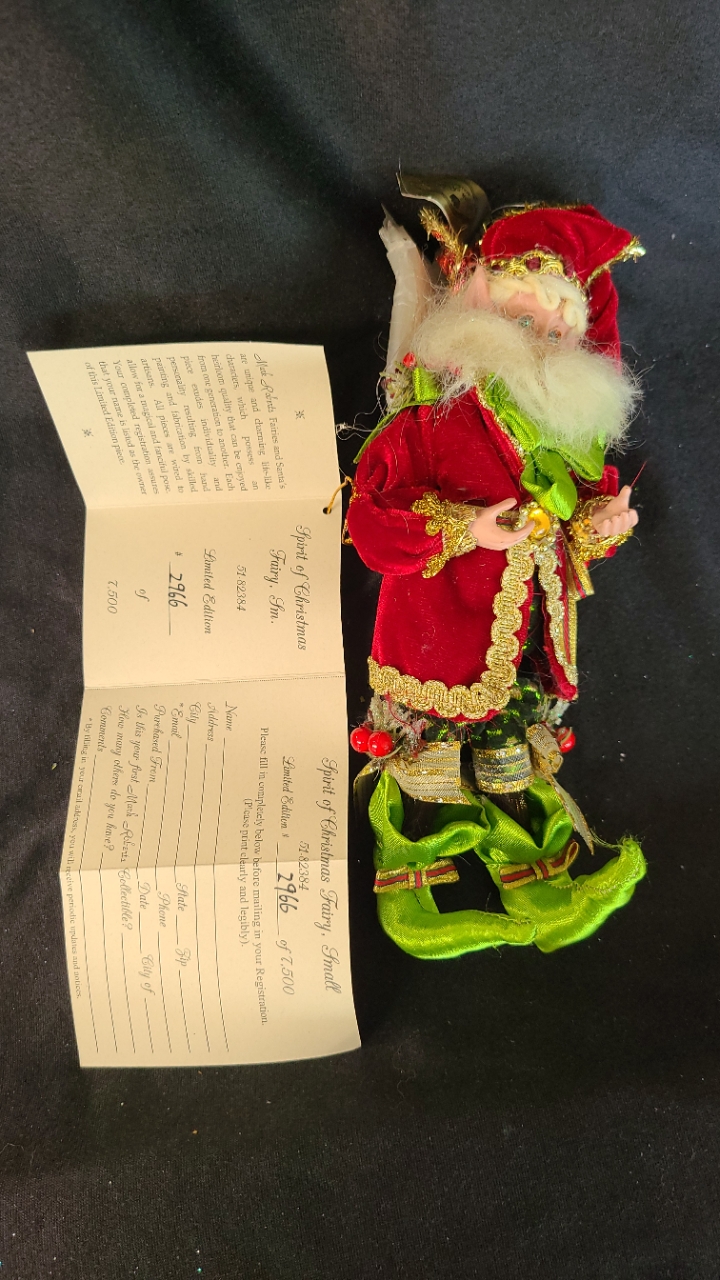 Mark Roberts Fairies and Santa's
are unique and charming life-like
characters, which possess an
heirloom quality that can be enjoyed
from one generation to another. Each
piece exudes individuality and
personality resulting from hand
painting and fabrication by skilled
artisans. All pieces are wired to
allow for a magical and fanciful pose.
Your completed registration assures
that your name is listed as the owner
of this Limited Edition piece.
Spirit of Christmas
Fairy, Sm.
51-82384
Limited Edition
# 2966
of
7,500
Spirit of Christmas Fairy, Small
51-82384
Limited Edition # 2966 of 7,500
Please fill in completely below before mailing in your Registration.
(Please print clearly and legibly).
Name
Address
City State Zip
*Email Phone
Purchased From Date City of
Is this your first Mark Roberts Collectible?
How many others do you have?
Comments
* By filling in your email address, you will receive periodic updates and notices.